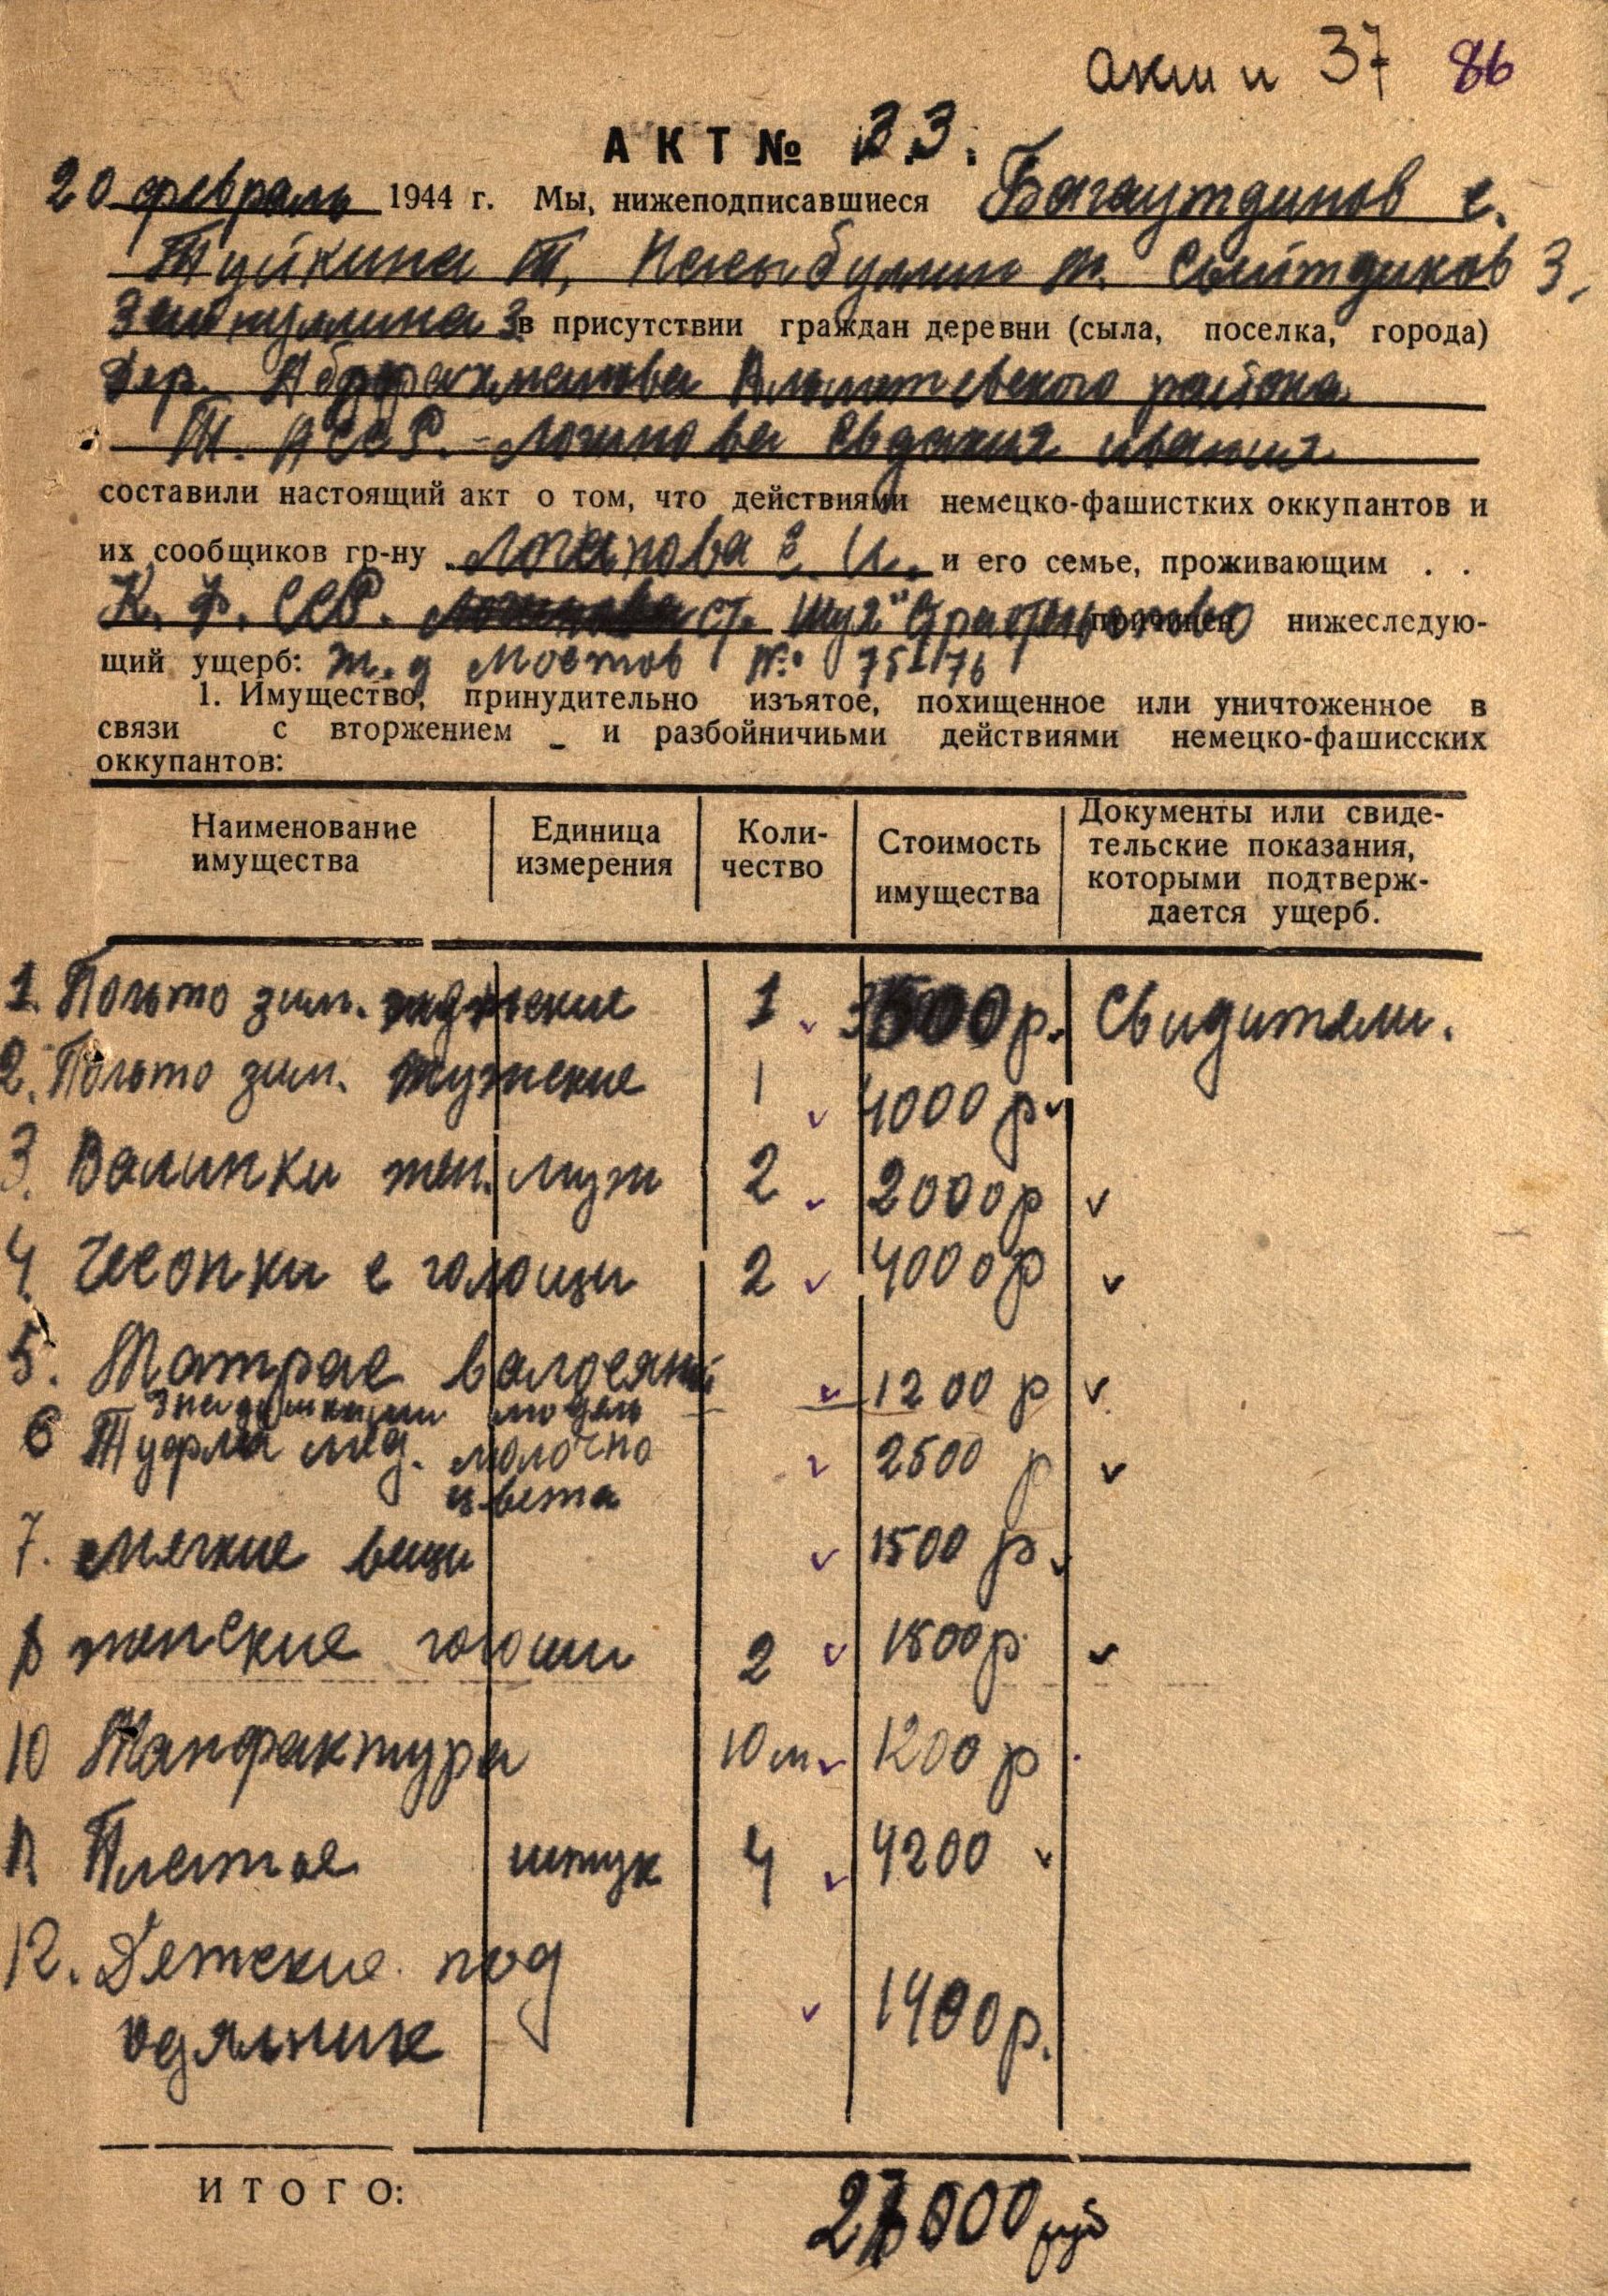 акт и 37 86
АКТ № 33.
20 февраль 1944 г. Мы, нижеподписавшиеся Багаутдинов с.
Туйкина Т, т. Сыйтдиков З.
З. в присутствии граждан деревни (сыла, поселка, города)
дер. Абдрахманова Альметевского района
Т. АССР. - Логинова Евдакия
составили настоящий акт о том, что действиями немецко-фашистких оккупантов и
их сообщиков гр-ну Логинова Е. И. и его семье, проживающим . .
К. Ф. ССР. ст. Шуя причинен нижеследую-
щий ущерб: ж. д Мостов № 75-76
1. Имущество, принудительно изъятое, похищенное или уничтоженное в
связи с вторжением и разбойничиьми действиями немецко-фашисских
оккупантов:
Наименование имущества Единица измерения Коли-чество Стоимость имущества Документы или свиде-тельские показания, которыми подтверж-дается ущерб.
1. Польто зим. 1 3500 р. Свидители.
2. Польто зим. мужские 1 4000 р
3. Валинки жен. муж 2 2000 р
4. Чесонки с галоши 2 4000 р
5. Матрас валосяной 1200 р
модель
6 Туфли молочно 2500 р
цвета
7. мягкие вещи 1500 р.
женские галоши 2 1500 р.
10 Манфактура 10 м 1200 р
11. Платье штук 4 4200
12. Детские под
одялник 1400 р.
ИТОГО: 27000 руб